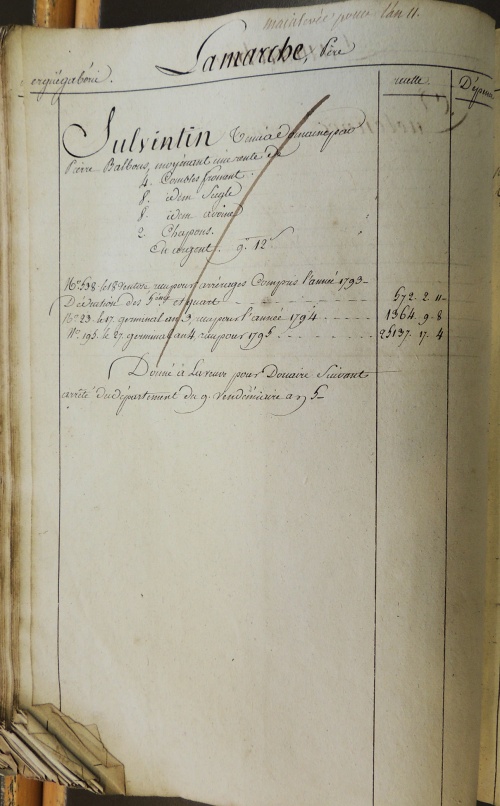 mainlevée pour l'an 11.
Lamarche, Père
erguégabéric.
recette.
Dépense
Sulvintin Tenue à domaine par
Pierre Balbous, moyénant une rente de
4. Combles froment.
8. idem Seigle
8. idem avoine
2. Chapons.
En argent. 9.# 12s
No. 538 le 18 ventose, reçu pour arrérages Compris l'année 1793-
Déduction des 5èmes et quart 572. 2. 11-
No. 23. le 17. germinal an 3, reçu pour l'année 1794 1364. 9. 8
No. 195. le 27. germinal an 4 reçu pour 1795 25137. 17. 4
Donné à la veuve pour Douaire Suivant
arrêté du département du 9. Vendémiaire an 5-